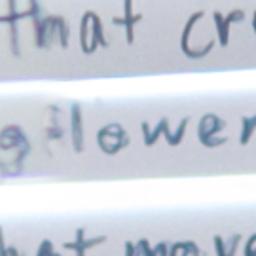 that cr
flower
hat move